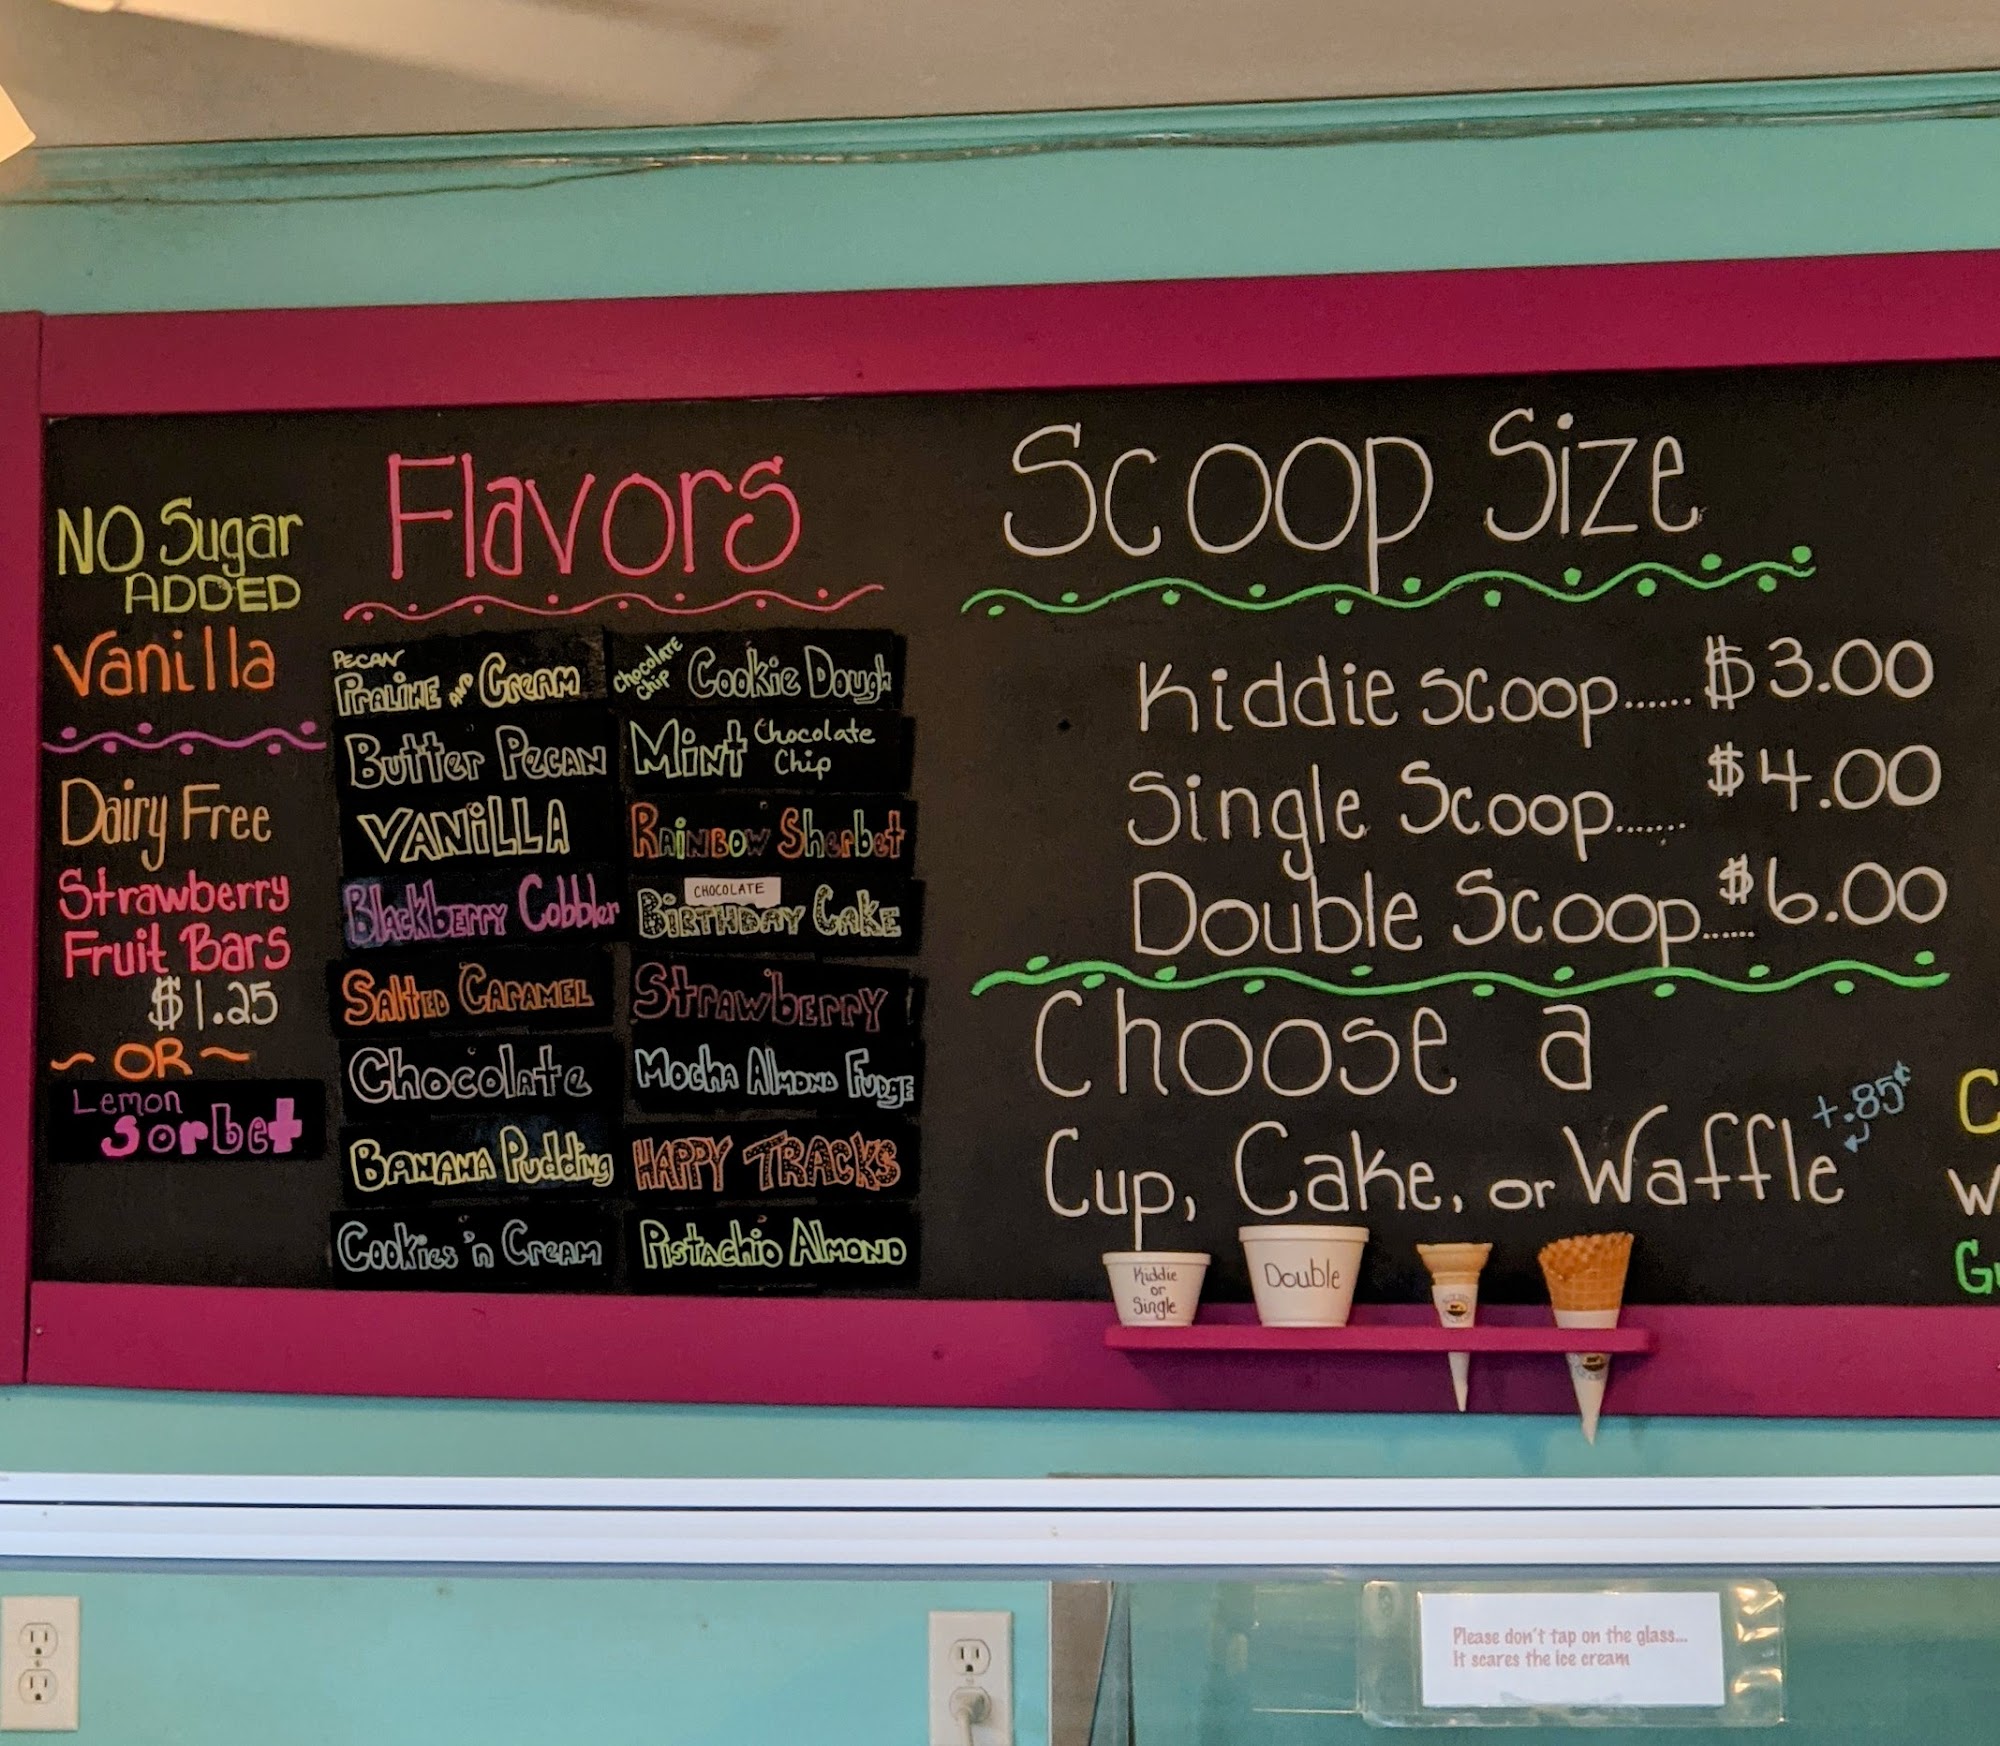 NO Sugar
ADDED
Vanilla
Dairy Free
Strawberry
Fruit Bars
$1.25
~ OR ~
Lemon
Sorbet
Flavors
PECAN
PRALINE AND CREAM
BUTTER PECAN
VANiLLA
Blackberry Cobbler
SALTED CARAMEL
CHOCOLATE
BANANA Pudding
COOKIES 'n CREAM
Chocolate
Chip
Cookie Dough
MINT Chocolate
Chip
RAiNBOW Sherbet
CHOCOLATE
BIRTHDAY CAKE
STRAWBERRY
MOCHA ALMOND FUDGE
HAPPY TRACKS
PISTACHIO ALMOND
Scoop Size
Kiddie scoop...... $3.00
Single Scoop....... $4.00
Double Scoop...... $6.00
Choose a
+.85¢
Cup, Cake, or Waffle
Kiddie
or
Single
Double
Please don't tap on the glass...
It scares the ice cream